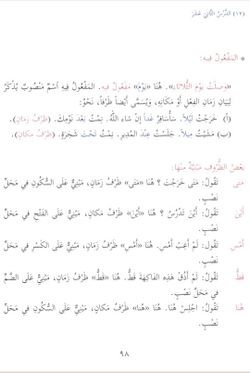 (١٢) الدَّرْسُ الثَّانِي عَشَرَ
* المَفْعُولُ فِيهِ:
«وَصَلْتُ يَوْمَ الثُّلَاثَاءِ». هُنَا «يَوْمَ» مَفْعُولٌ فِيهِ. المَفْعُولُ فِيهِ اسْمٌ مَنْصُوبٌ يُذْكَرُ
لِبَيَانِ زَمَانِ الفِعْلِ أَوْ مَكَانِهِ، وَيُسَمَّى أَيْضاً ظَرْفاً، نَحْوُ:
(أ) خَرَجْتُ لَيْلاً. سَأُسَافِرُ غَداً إِنْ شَاءَ اللَّهُ. نِمْتُ بَعْدَ نَوْمِكَ. (ظَرْفُ زَمَانٍ).
(ب) مَشَيْتُ مِيلاً. جَلَسْتُ عِنْدَ المُدِيرِ. نِمْتُ تَحْتَ شَجَرَةٍ. (ظَرْفُ مَكَانٍ).
بَعْضُ الظُّرُوفِ مَبْنِيَّةٌ مِنْهَا:
مَتَى تَقُولُ: مَتَى خَرَجْتَ ؟ هُنَا «مَتَى» ظَرْفُ زَمَانٍ، مَبْنِيٌّ عَلَى السُّكُونِ فِي مَحَلِّ
نَصْبٍ.
أَيْنَ تَقُولُ: أَيْنَ تَدْرُسُ ؟ هُنَا «أَيْنَ» ظَرْفُ مَكَانٍ، مَبْنِيٌّ عَلَى الفَتْحِ فِي مَحَلِّ
نَصْبٍ.
أَمْسِ تَقُولُ: لَمْ أَغِبْ أَمْسِ. هُنَا «أَمْسِ» ظَرْفُ زَمَانٍ، مَبْنِيٌّ عَلَى الكَسْرِ فِي مَحَلِّ
نَصْبٍ.
قَطُّ تَقُولُ: لَمْ أَذُقْ هَذِهِ الفَاكِهَةَ قَطُّ. هُنَا «قَطُّ» ظَرْفُ زَمَانٍ، مَبْنِيٌّ عَلَى الضَّمِّ
فِي مَحَلِّ نَصْبٍ.
هُنَا تَقُولُ: اجْلِسْ هُنَا. هُنَا «هُنَا» ظَرْفُ مَكَانٍ، مَبْنِيٌّ عَلَى السُّكُونِ فِي مَحَلِّ
نَصْبٍ.
٩٨